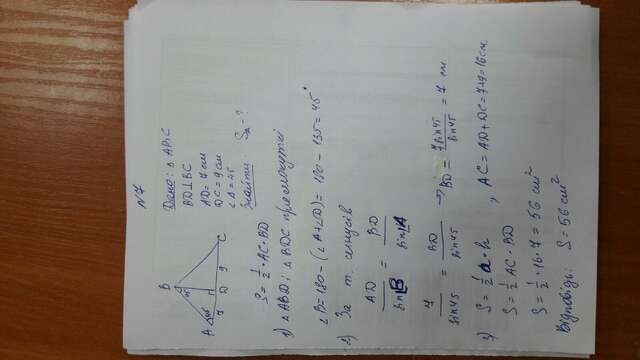 N7
Дано: △ ABC
BD⊥BC
AD = 7 см
DC = 9 см
∠A = 45
Знайти S△ - ?
B
45
A 45 C
7 D 9
S = 1/2 · AC · BD
1) △ABD і △BDC прямокутні
∠B = 180 - (∠A+∠D) = 180 - 135 = 45°
2) За т. синусів
AD/sin B = BD/sin A
7/sin45 = BD/sin45 → BD = 7 sin45/sin45 = 7 см
3) S = 1/2 a · h , AC = AD + DC = 7+9 = 16 см.
S = 1/2 AC · BD
S = 1/2 · 16 · 7 = 56 см²
Відповідь: S = 56 см²